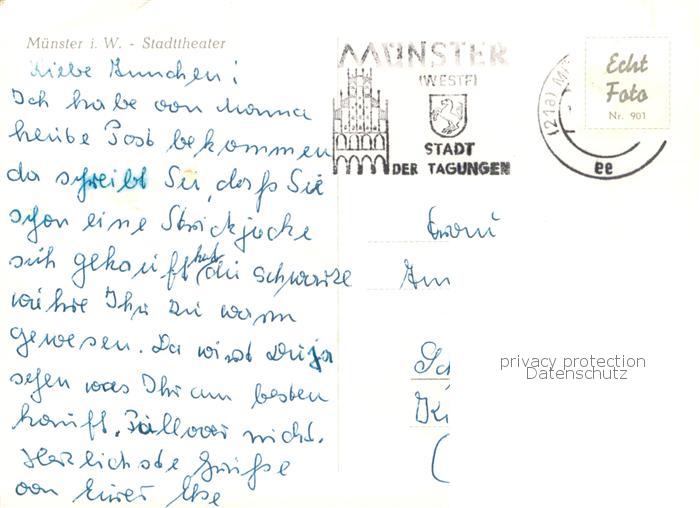 Münster i. W. - Stadttheater
Liebe Ännchen!
Ich habe von Mama
heute Post bekommen
da schreibt Sie, dass Sie
schon eine Strickjacke
sich gekauft hat, die schwarze
währe Ihr zu warm
gewesen. Da wirst Du ja
sehen was Ihr am besten
kauft. Pullover nicht.
Herzlichste Grüße
von Eurer Else
MÜNSTER
(WESTF)
STADT
DER TAGUNGEN
(21a)
ee
Echt
Foto
Nr. 901
Frau
privacy protection
Datenschutz